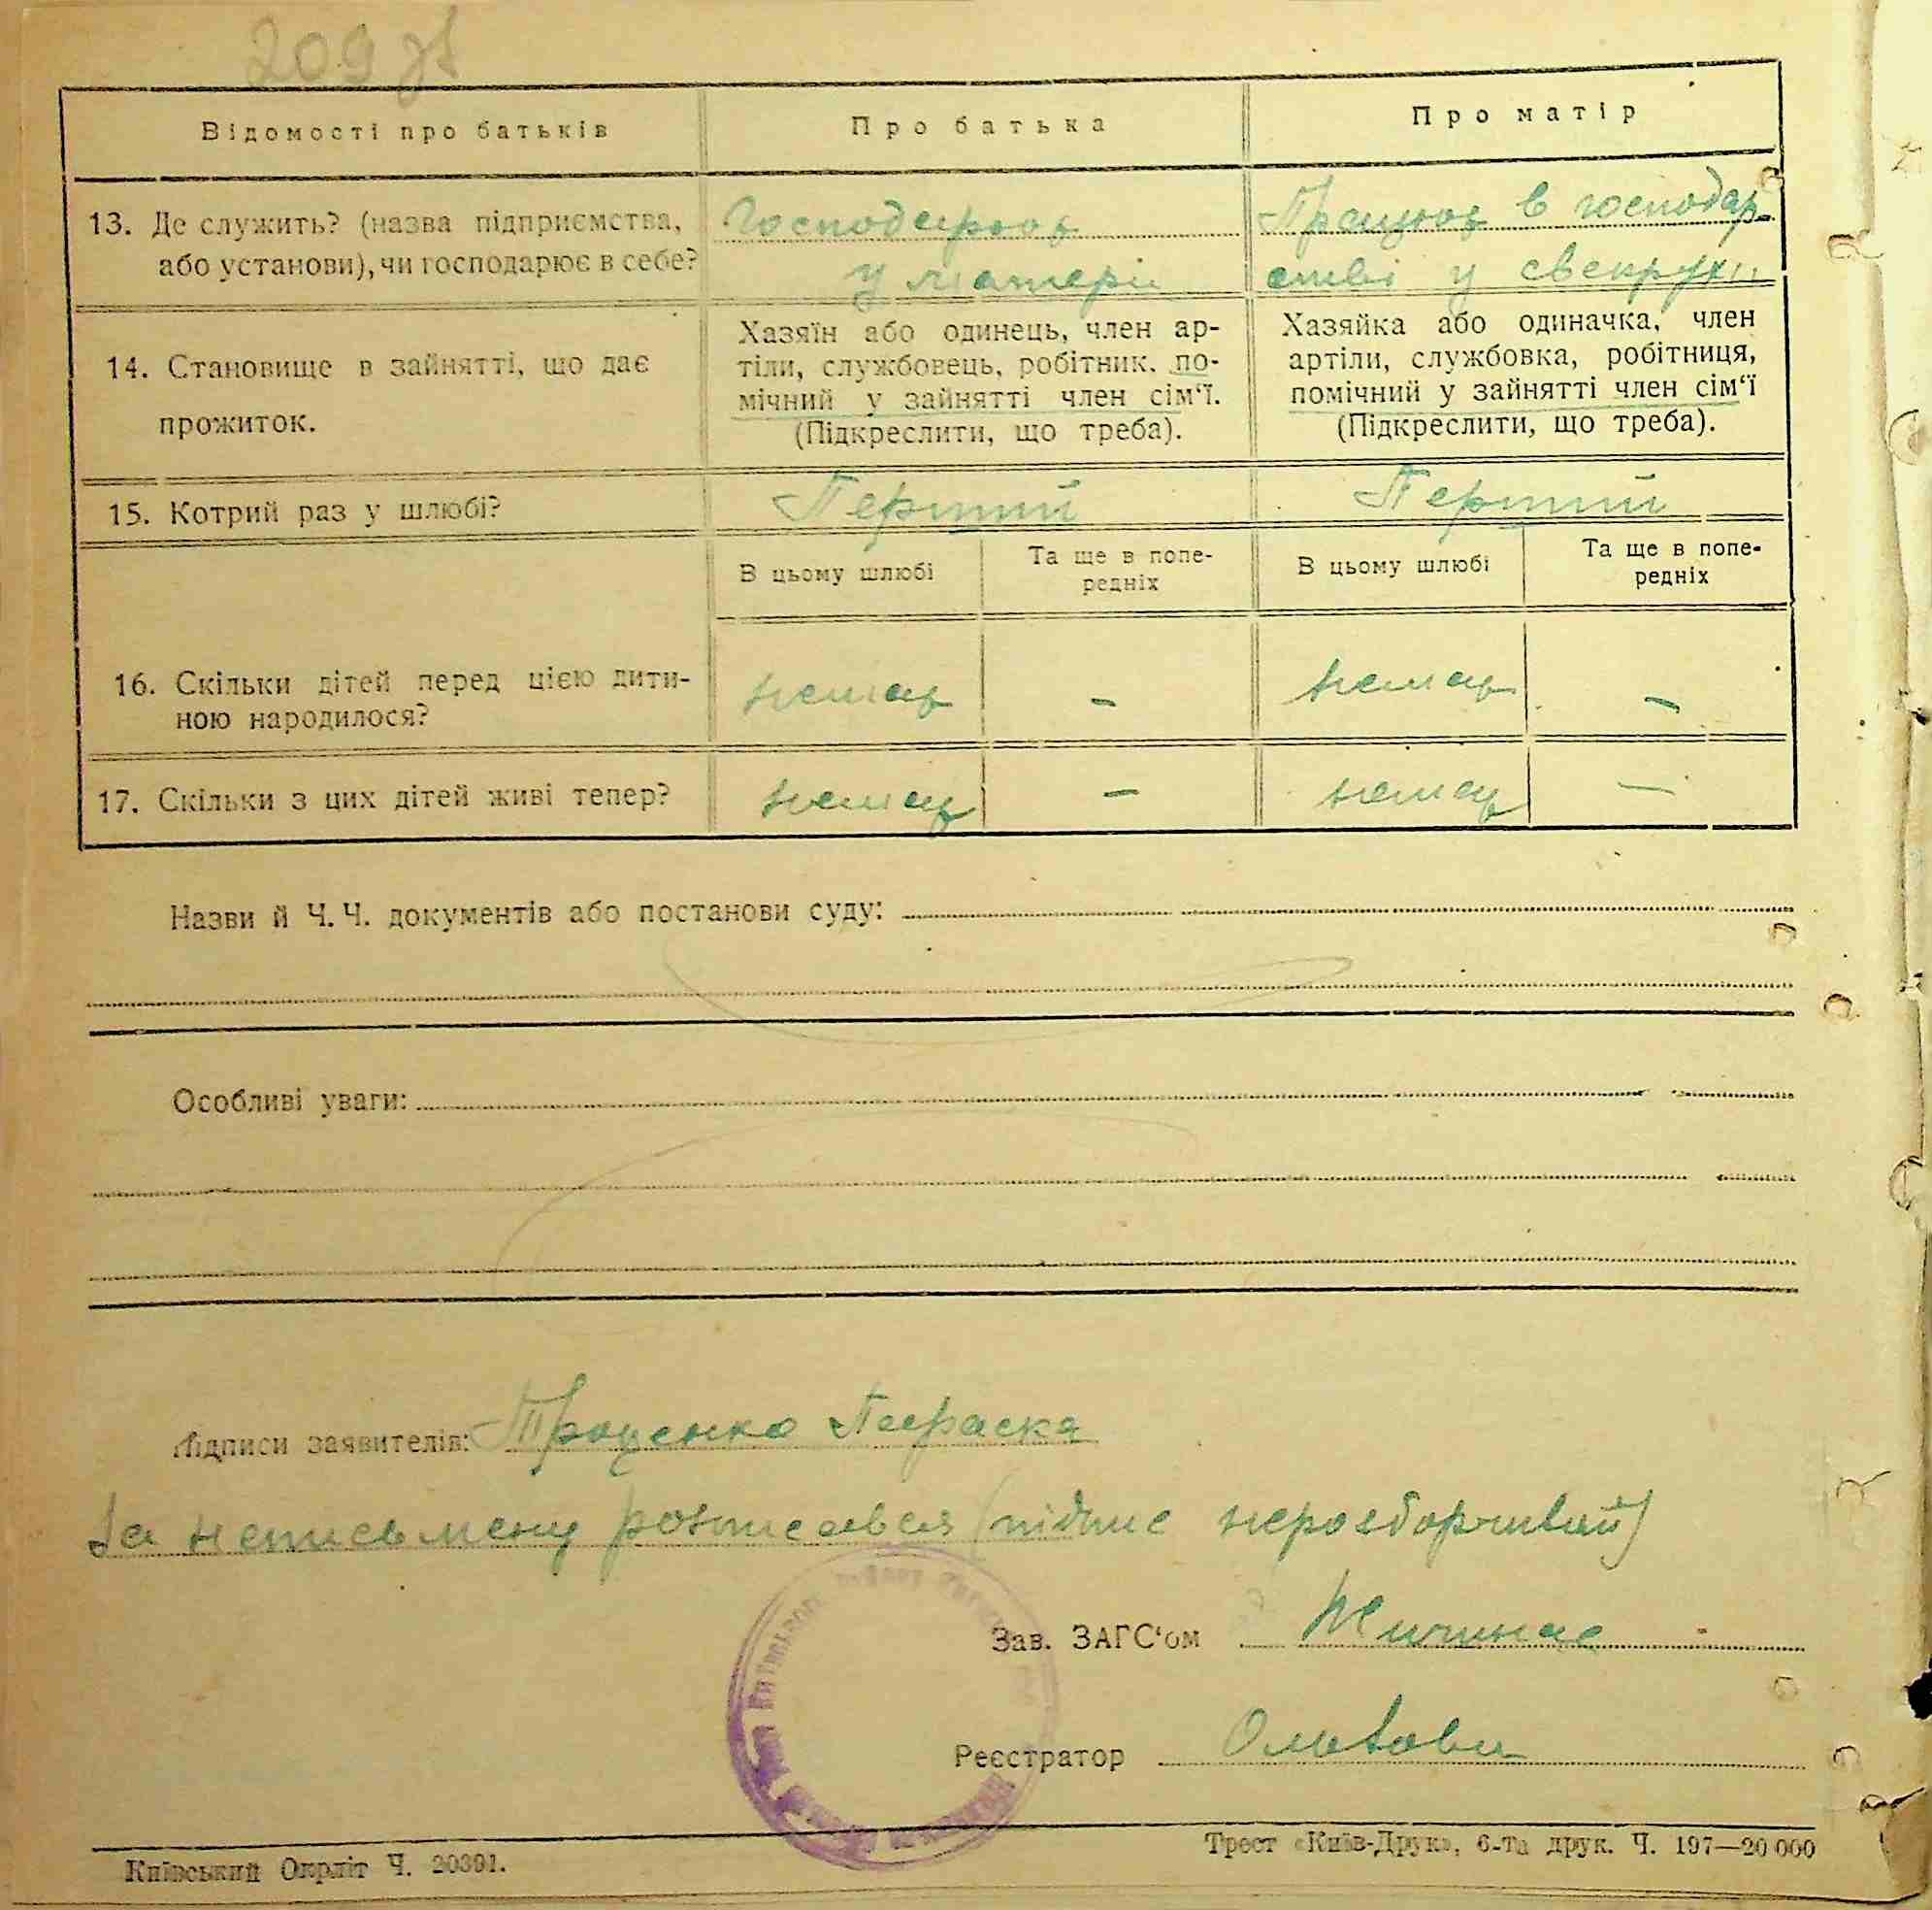 209 зв
Відомості про батьків
Про батька
Про матір
13. Де служить? (назва підприємства,
або установи), чи господарює в себе?
Господарює
у матері
Працює в господар-
стві у свекрухи
14. Становище в зайнятті, що дає
прожиток.
Хазяїн або одинець, член ар-
тіли, службовець, робітник, по-
мічний у зайнятті член сім‘ї.
(Підкреслити, що треба).
Хазяйка або одиначка, член
артіли, службовка, робітниця,
помічний у зайнятті член сім‘ї
(Підкреслити, що треба).
15. Котрий раз у шлюбі?
Перший
Перший
В цьому шлюбі
Та ще в попе-
редніх
В цьому шлюбі
Та ще в попе-
редніх
16. Скільки дітей перед цією дити-
ною народилося?
немає
–
немає
–
17. Скільки з цих дітей живі тепер?
немає
–
немає
–
Назви й Ч. Ч. документів або постанови суду:
Особливі уваги:
Підписи заявителів: Проценко Параска
За неписьмену розписався (підпис неразборчивий)
Зав. ЗАГС‘ом
Реєстратор
Київський Окрліт Ч. 20391.
Трест «Київ-Друк», 6-та друк. Ч. 197—20 000